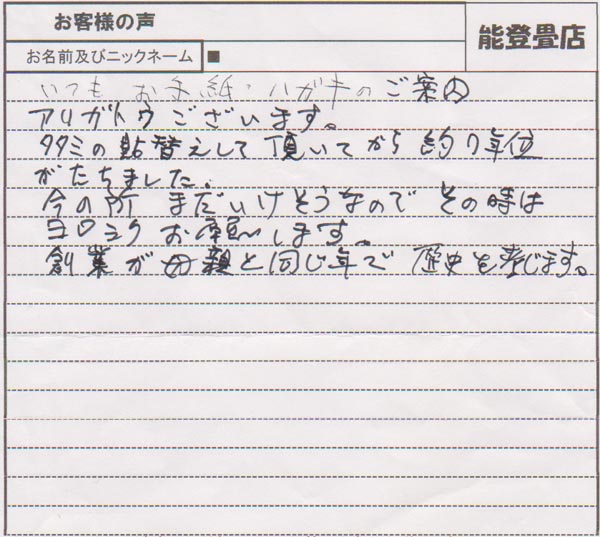 お客様の声
能登畳店
お名前及びニックネーム
いつも お手紙・ハガキの ご案内
アリガトウございます。
タタミの 貼替えして 頂いてから 約7年位
がたちました。
今の所 まだいけそうなので その時は
ヨロシク お願いします。
創業が 母親と同じ年で 歴史を感じます。